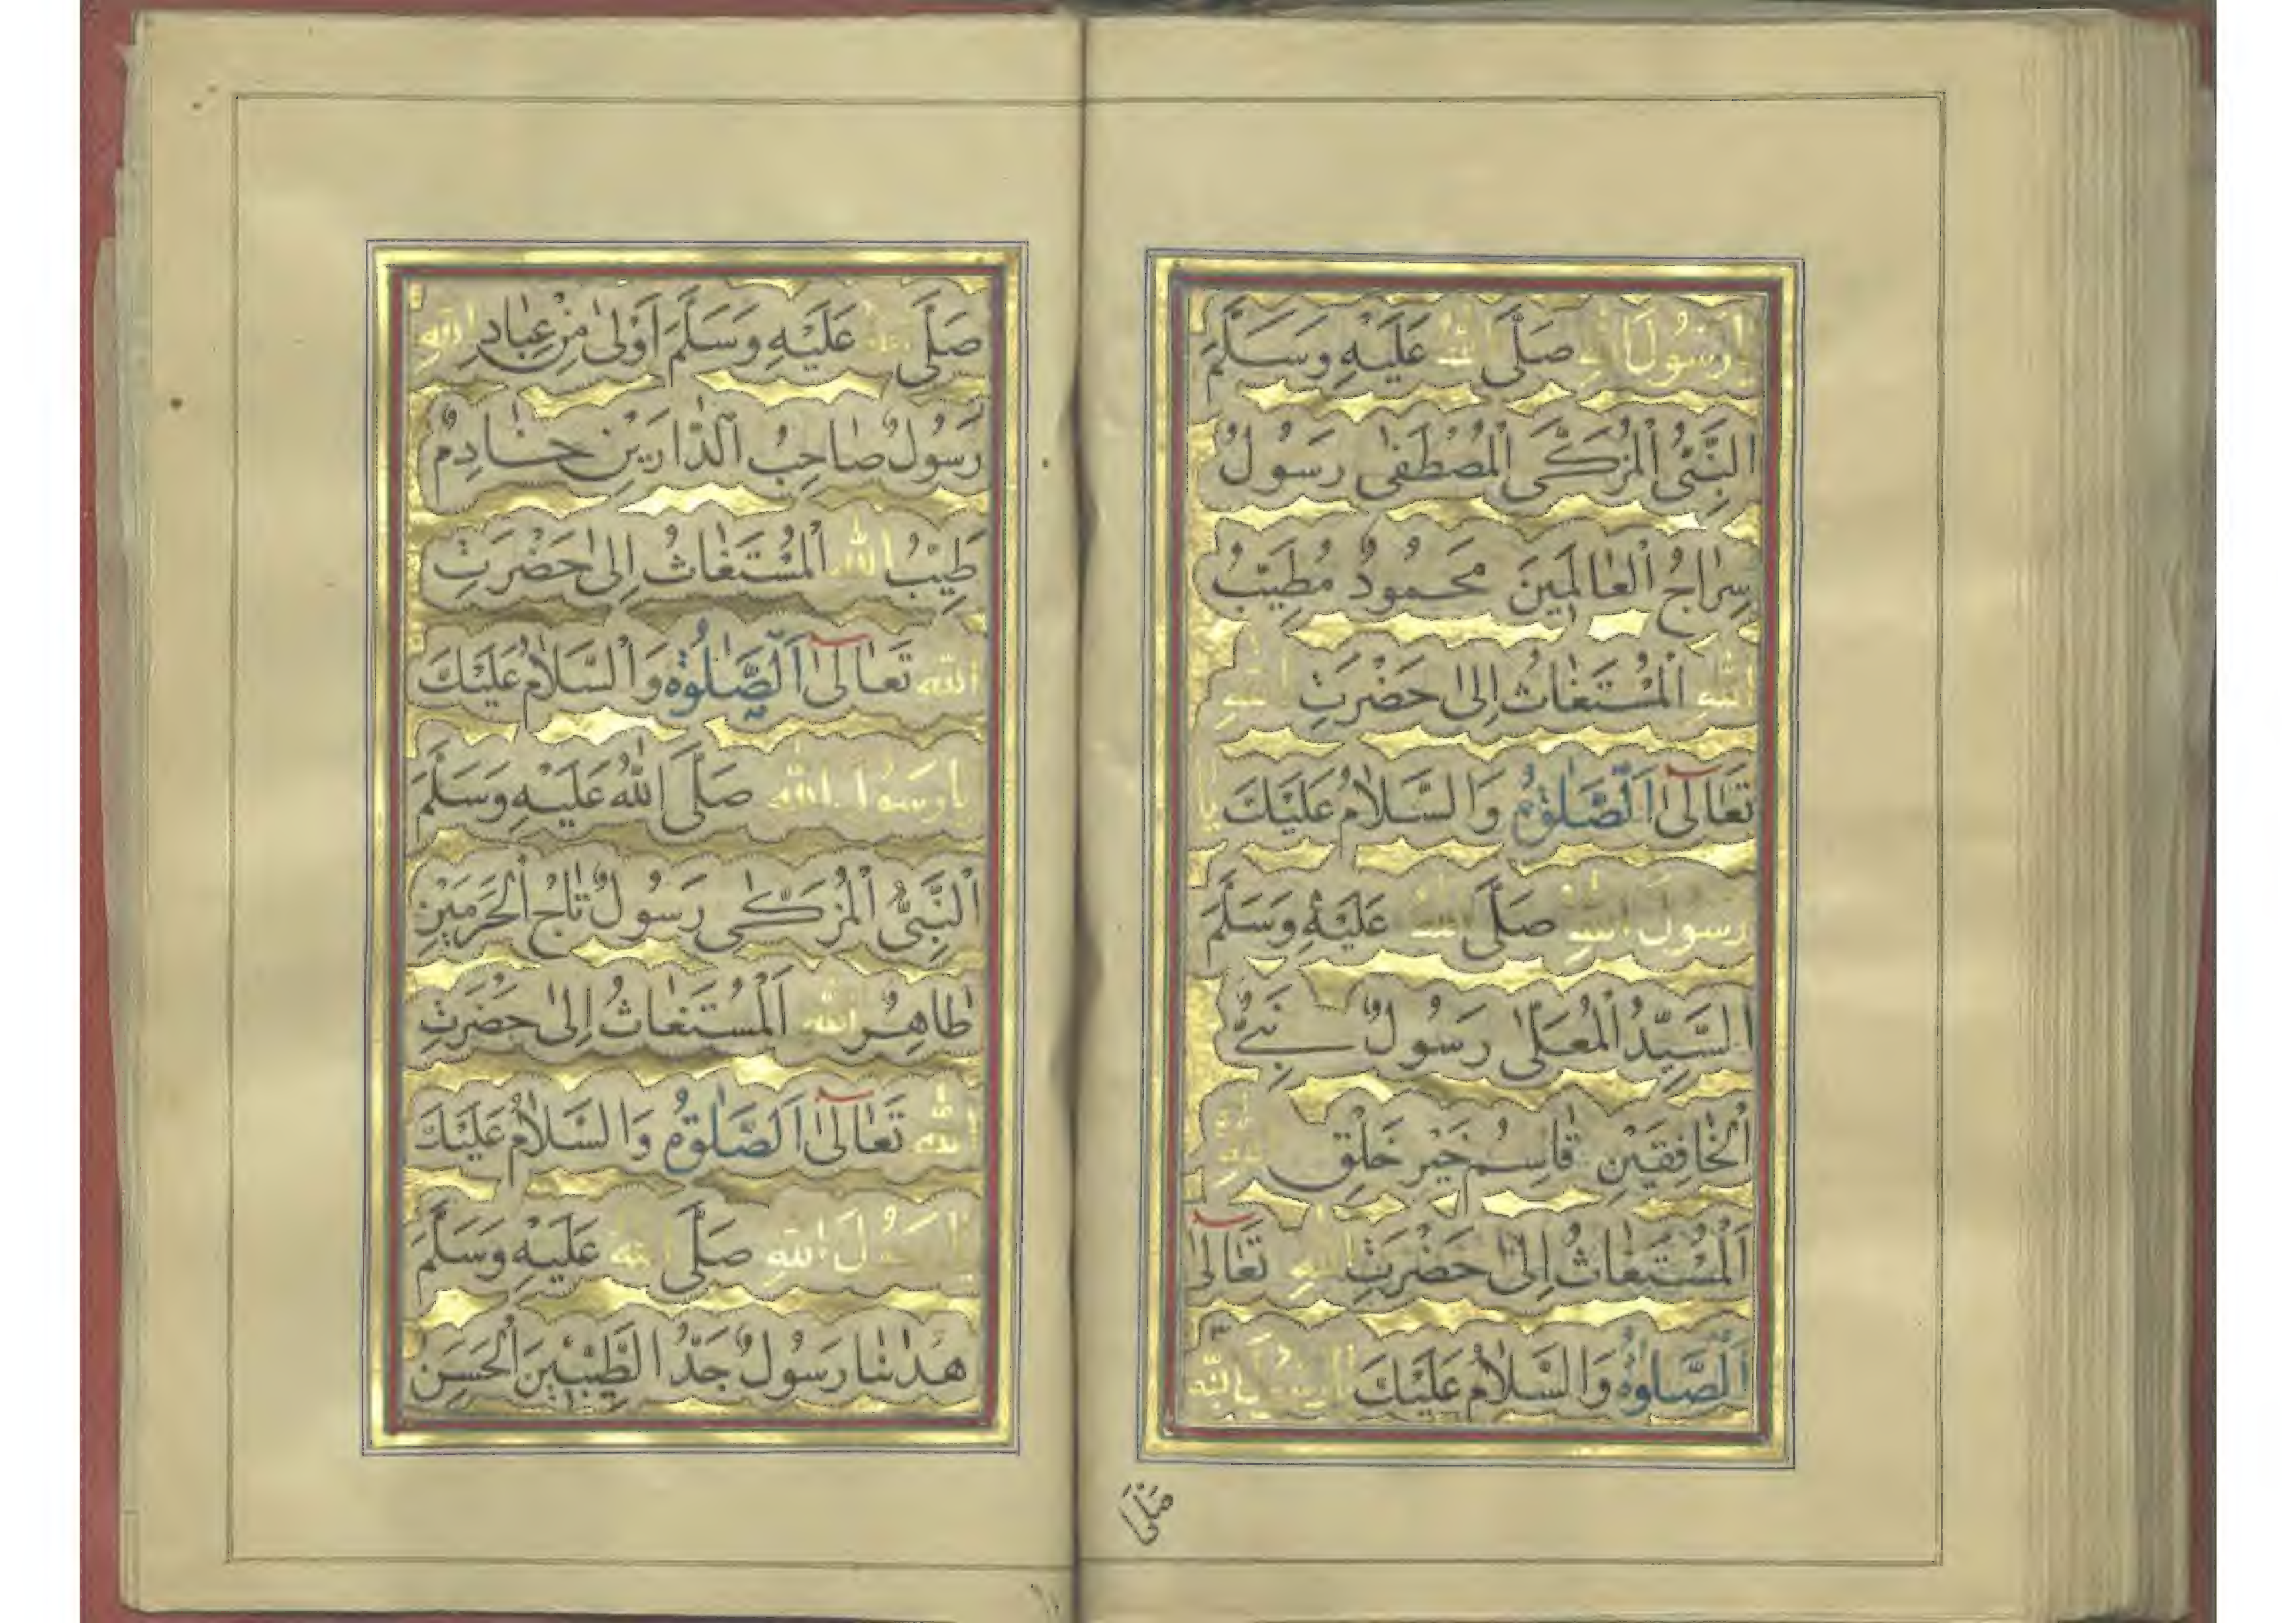 يا رَسُولَ اللهِ صَلَّى اللهُ عَلَيْهِ وَسَلَّمَ
النَّبِيُّ الْمُزَكَّى الْمُصْطَفٰى رَسُولٌ
سِرٰاجُ الْعٰالَمِينَ مَحْمُودٌ مُطَيِّبُ
اللهِ الْمُسْتَغٰاثُ اِلىٰ حَضْرَتِ اللهِ
تَعٰالىٰ اَلصَّلٰوةُ وَالسَّلاٰمُ عَلَيْكَ يا
رَسُولَ اللهِ صَلَّى اللهُ عَلَيْهِ وَسَلَّمَ
السَّيِّدُ الْمُعَلّٰى رَسُولٌ نَبِيُّ
الْخٰافِقَيْنِ قٰاسِمُ خَيْرِ خَلْقِ اللهِ
اَلْمُسْتَغٰاثُ اِلىٰ حَضْرَتِ اللهِ تَعٰالىٰ
اَلصَّلٰوةُ وَالسَّلاٰمُ عَلَيْكَ يا رَسُولَ اللهِ
صَلَّى
صَلَّى اللهُ عَلَيْهِ وَسَلَّمَ اَوْلىٰ مِنْ عِبٰادِ اللهِ
رَسُولٌ صٰاحِبُ الدّٰارَيْنِ خٰادِمٌ
طَيِّبُ اللهِ الْمُسْتَغٰاثُ اِلىٰ حَضْرَتِ
اللهِ تَعٰالىٰ اَلصَّلٰوةُ وَالسَّلاٰمُ عَلَيْكَ
يا رَسُولَ اللهِ صَلَّى اللهُ عَلَيْهِ وَسَلَّمَ
النَّبِيُّ الْمُزَكّٰى رَسُولٌ تٰاجُ الْحَرَمَيْنِ
طٰاهِرُ اللهِ اَلْمُسْتَغٰاثُ اِلىٰ حَضْرَتِ
اللهِ تَعٰالىٰ اَلصَّلٰوةُ وَالسَّلاٰمُ عَلَيْكَ
يا رَسُولَ اللهِ صَلَّى اللهُ عَلَيْهِ وَسَلَّمَ
هَدٰانٰا رَسُولٌ جَدُّ الطَّيِّبَيْنِ الْحَسَنِ